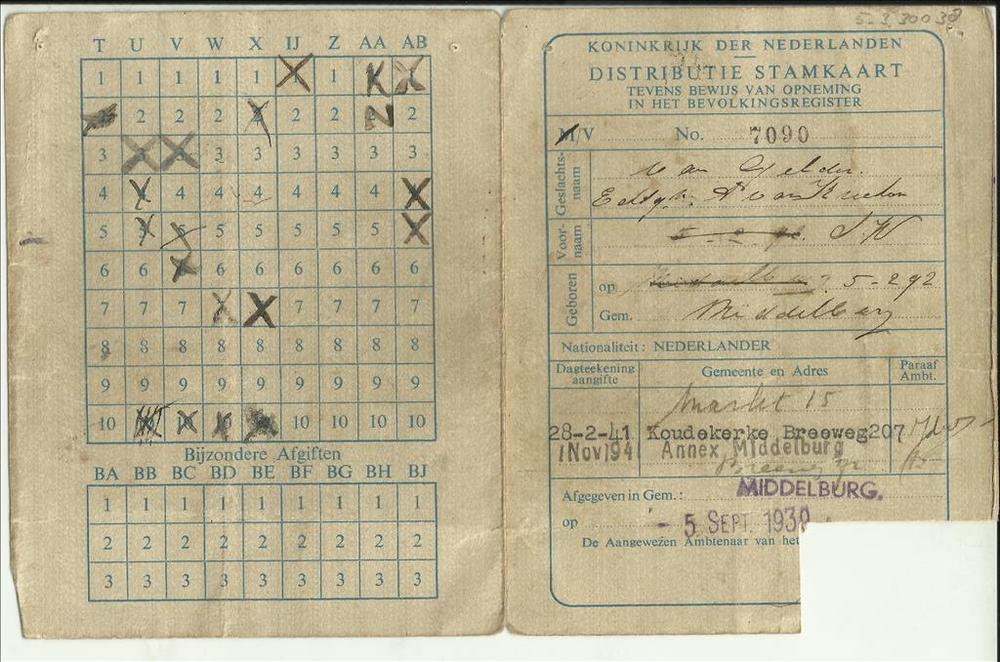 T U V W X IJ Z AA AB
1 1 1 1 1 1 K
2 2 2 2 2 2 N 2
3 3 3 3 3 3 3
4 4 4 4 4 4 4 4
5 5 5 5 5 5 5
6 6 6 6 6 6 6 6 6
7 7 7 7 7 7 7
8 8 8 8 8 8 8 8 8
9 9 9 9 9 9 9 9 9
10 10 10 10 10
Bijzondere Afgiften
BA BB BC BD BE BF BG BH BJ
1 1 1 1 1 1 1 1 1
2 2 2 2 2 2 2 2 2
3 3 3 3 3 3 3 3 3
KONINKRIJK DER NEDERLANDEN
DISTRIBUTIE STAMKAART
TEVENS BEWIJS VAN OPNEMING
IN HET BEVOLKINGSREGISTER
M/V No. 7090
Geslachts-
naam
van Gelder
Echtg.
Voor-
naam
Geboren
op 5-2 92
Gem. Middelburg
Nationaliteit: NEDERLANDER
Dagteekening
aangifte
Gemeente en Adres
Paraaf
Ambt.
Markt 15
28-2-41 Koudekerke Breeweg207
1 Nov 194 Annex Middelburg
Afgegeven in Gem.: MIDDELBURG.
op - 5 SEPT. 1939
De Aangewezen Ambtenaar van het